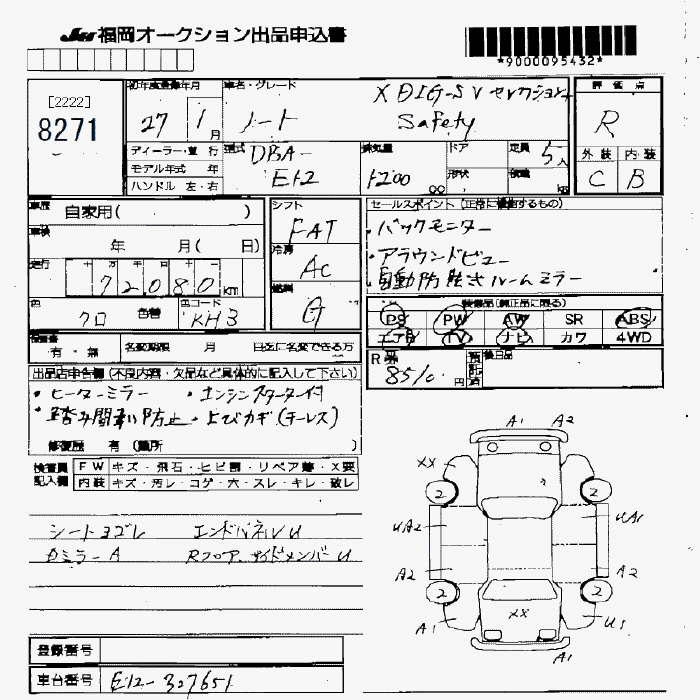 福岡オークション出品申込書
*9000095432*
[2222]
8271
初年度登録年月
27 1月
車名・グレード
X DIG-S Vセレクション+
ノート Safety
評価点
R
外装 内装
C B
ディーラー・並 行
モデル年式 年
ハンドル 左・右
型式
DBA-
E12
排気量
1200 cc
ドア
形状
定員 5人
積載 kg
車歴 自家用( )
車検 年 月( 日)
走行 72080km
色 クロ 色替
色コード KH3
シフト
FAT
冷房
AC
燃料
G
セールスポイント(正常に機能するもの)
・バックモニター
・アラウンドビュー
・自動防眩式ルームミラー
装備品(純正品に限る)
PS PW AW SR ABS
エアB TV ナビ カワ 4WD
有・無 名変期限 月 日迄に名変できる方
R券 8510円
預託済
後日品
出品店申告欄(不良内容・欠品など具体的に記入して下さい)
・ヒーターミラー ・エンジンスターター付
・踏み間違い防止
修復歴 有(箇所 )
検査員記入欄
FW キズ・飛石・ヒビ割・リペア跡・X要
内装 キズ・汚レ・コゲ・穴・スレ・キレ・破レ
シートヨゴレ エンドパネルU
DミラーA Rフロア、サイドメンバーU
A1 A2
XX
2 2
UA2 UA1
A2 A2
2 2
XX
A1 U1
A1
登録番号
車台番号 E12-307651